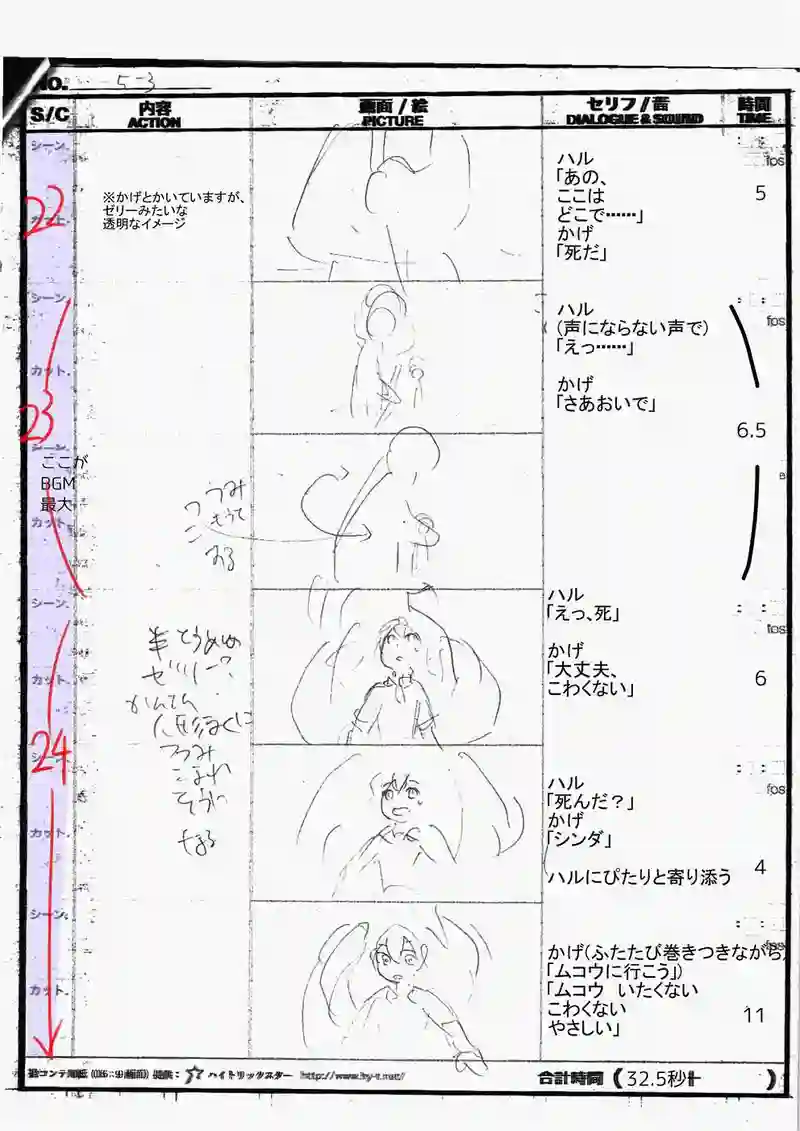 NO. 5-3
S/C
内容
ACTION
画面/絵
PICTURE
セリフ/音
DIALOGUE & SOUND
時間
TIME
シーン.
カット.
22
※かげとかいていますが、
ゼリーみたいな
透明なイメージ
ハル
「あの、
ここは
どこで……」
かげ
「死だ」
5
fps
シーン.
カット.
23
ハル
(声にならない声で)
「えっ……」
かげ
「さあおいで」
fps
6.5
シーン.
ここが
BGM
最大
カット.
つつみ
シーン.
カット.
24
半とうめい
ゼリー?
かんてん
ハル
「えっ、死」
かげ
「大丈夫、
こわくない」
fps
6
シーン.
カット.
ハル
「死んだ?」
かげ
「シンダ」
ハルにぴたりと寄り添う
fps
4
シーン.
カット.
かげ(ふたたび巻きつきながら
「ムコウに行こう」)
「ムコウ いたくない
こわくない
やさしい」
fps
11
ハイトリックスター
合計時間 ( 32.5秒 )